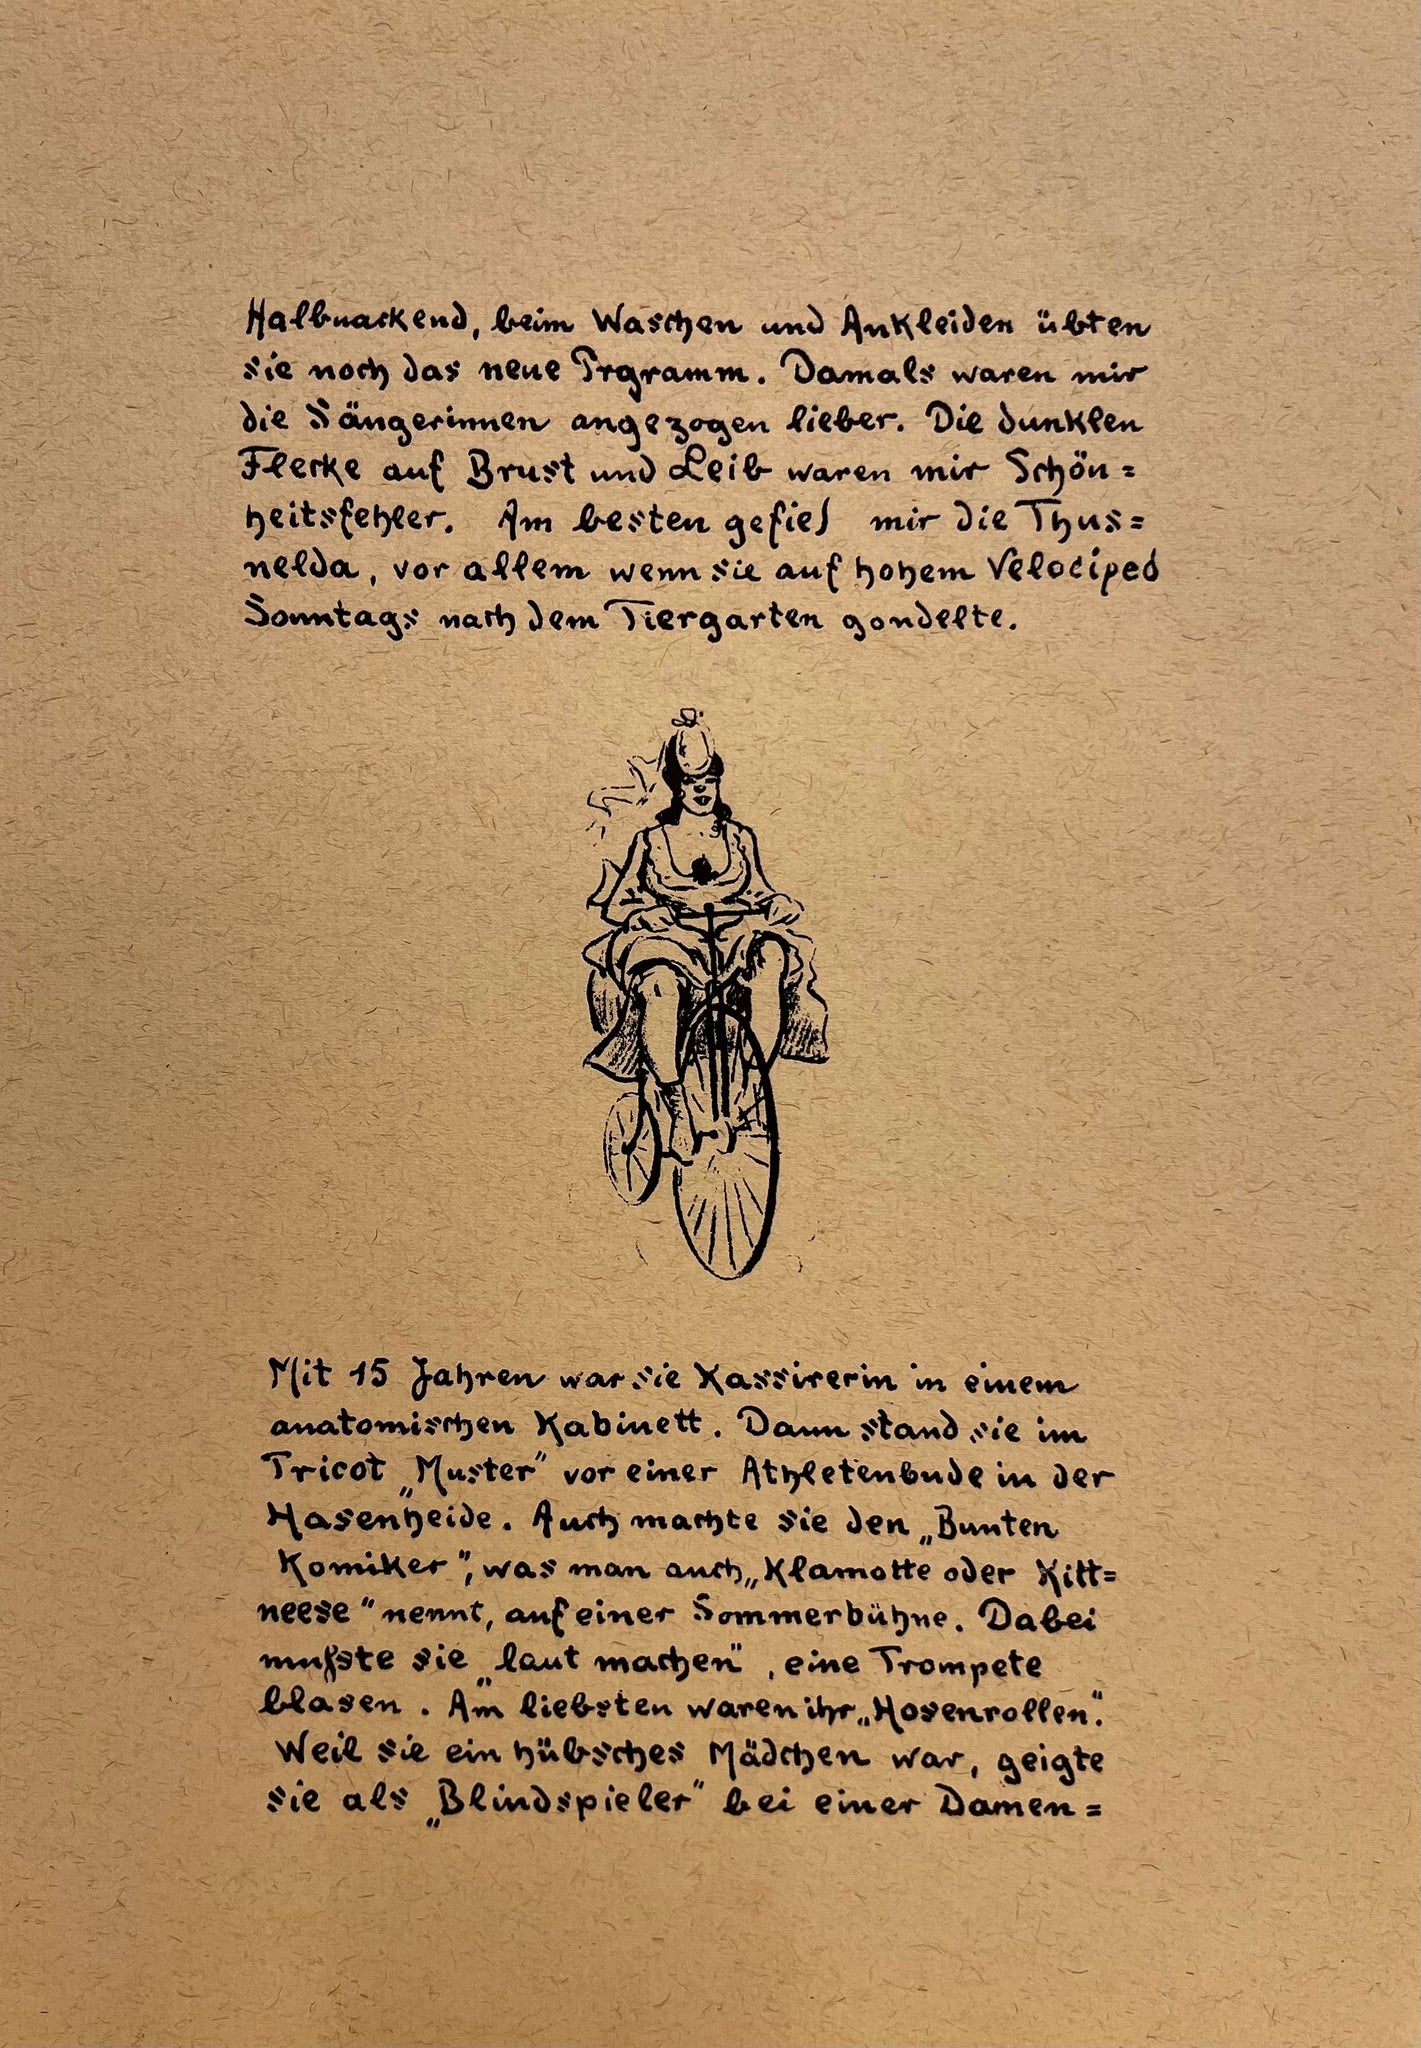 Halbnackend, beim Waschen und Ankleiden übten
sie noch das neue Prgramm. Damals waren mir
die Sängerinnen angezogen lieber. Die dunklen
Flecke auf Brust und Leib waren mir Schön=
heitsfehler. Am besten gefiel mir die Thus=
nelda, vor allem wenn sie auf hohem Velociped
Sonntags nach dem Tiergarten gondelte.
Mit 15 Jahren war sie Kassirerin in einem
anatomischen Kabinett. Dann stand sie im
Tricot „Muster" vor einer Athletenbude in der
Hasenheide. Auch machte sie den „Bunten
Komiker", was man auch „Klamotte oder Kitt=
neese" nennt, auf einer Sommerbühne. Dabei
mußste sie „laut machen", eine Trompete
blasen. Am liebsten waren ihr „Hosenrollen".
Weil sie ein hübsches Mädchen war, geigte
sie als „Blindspieler" bei einer Damen=